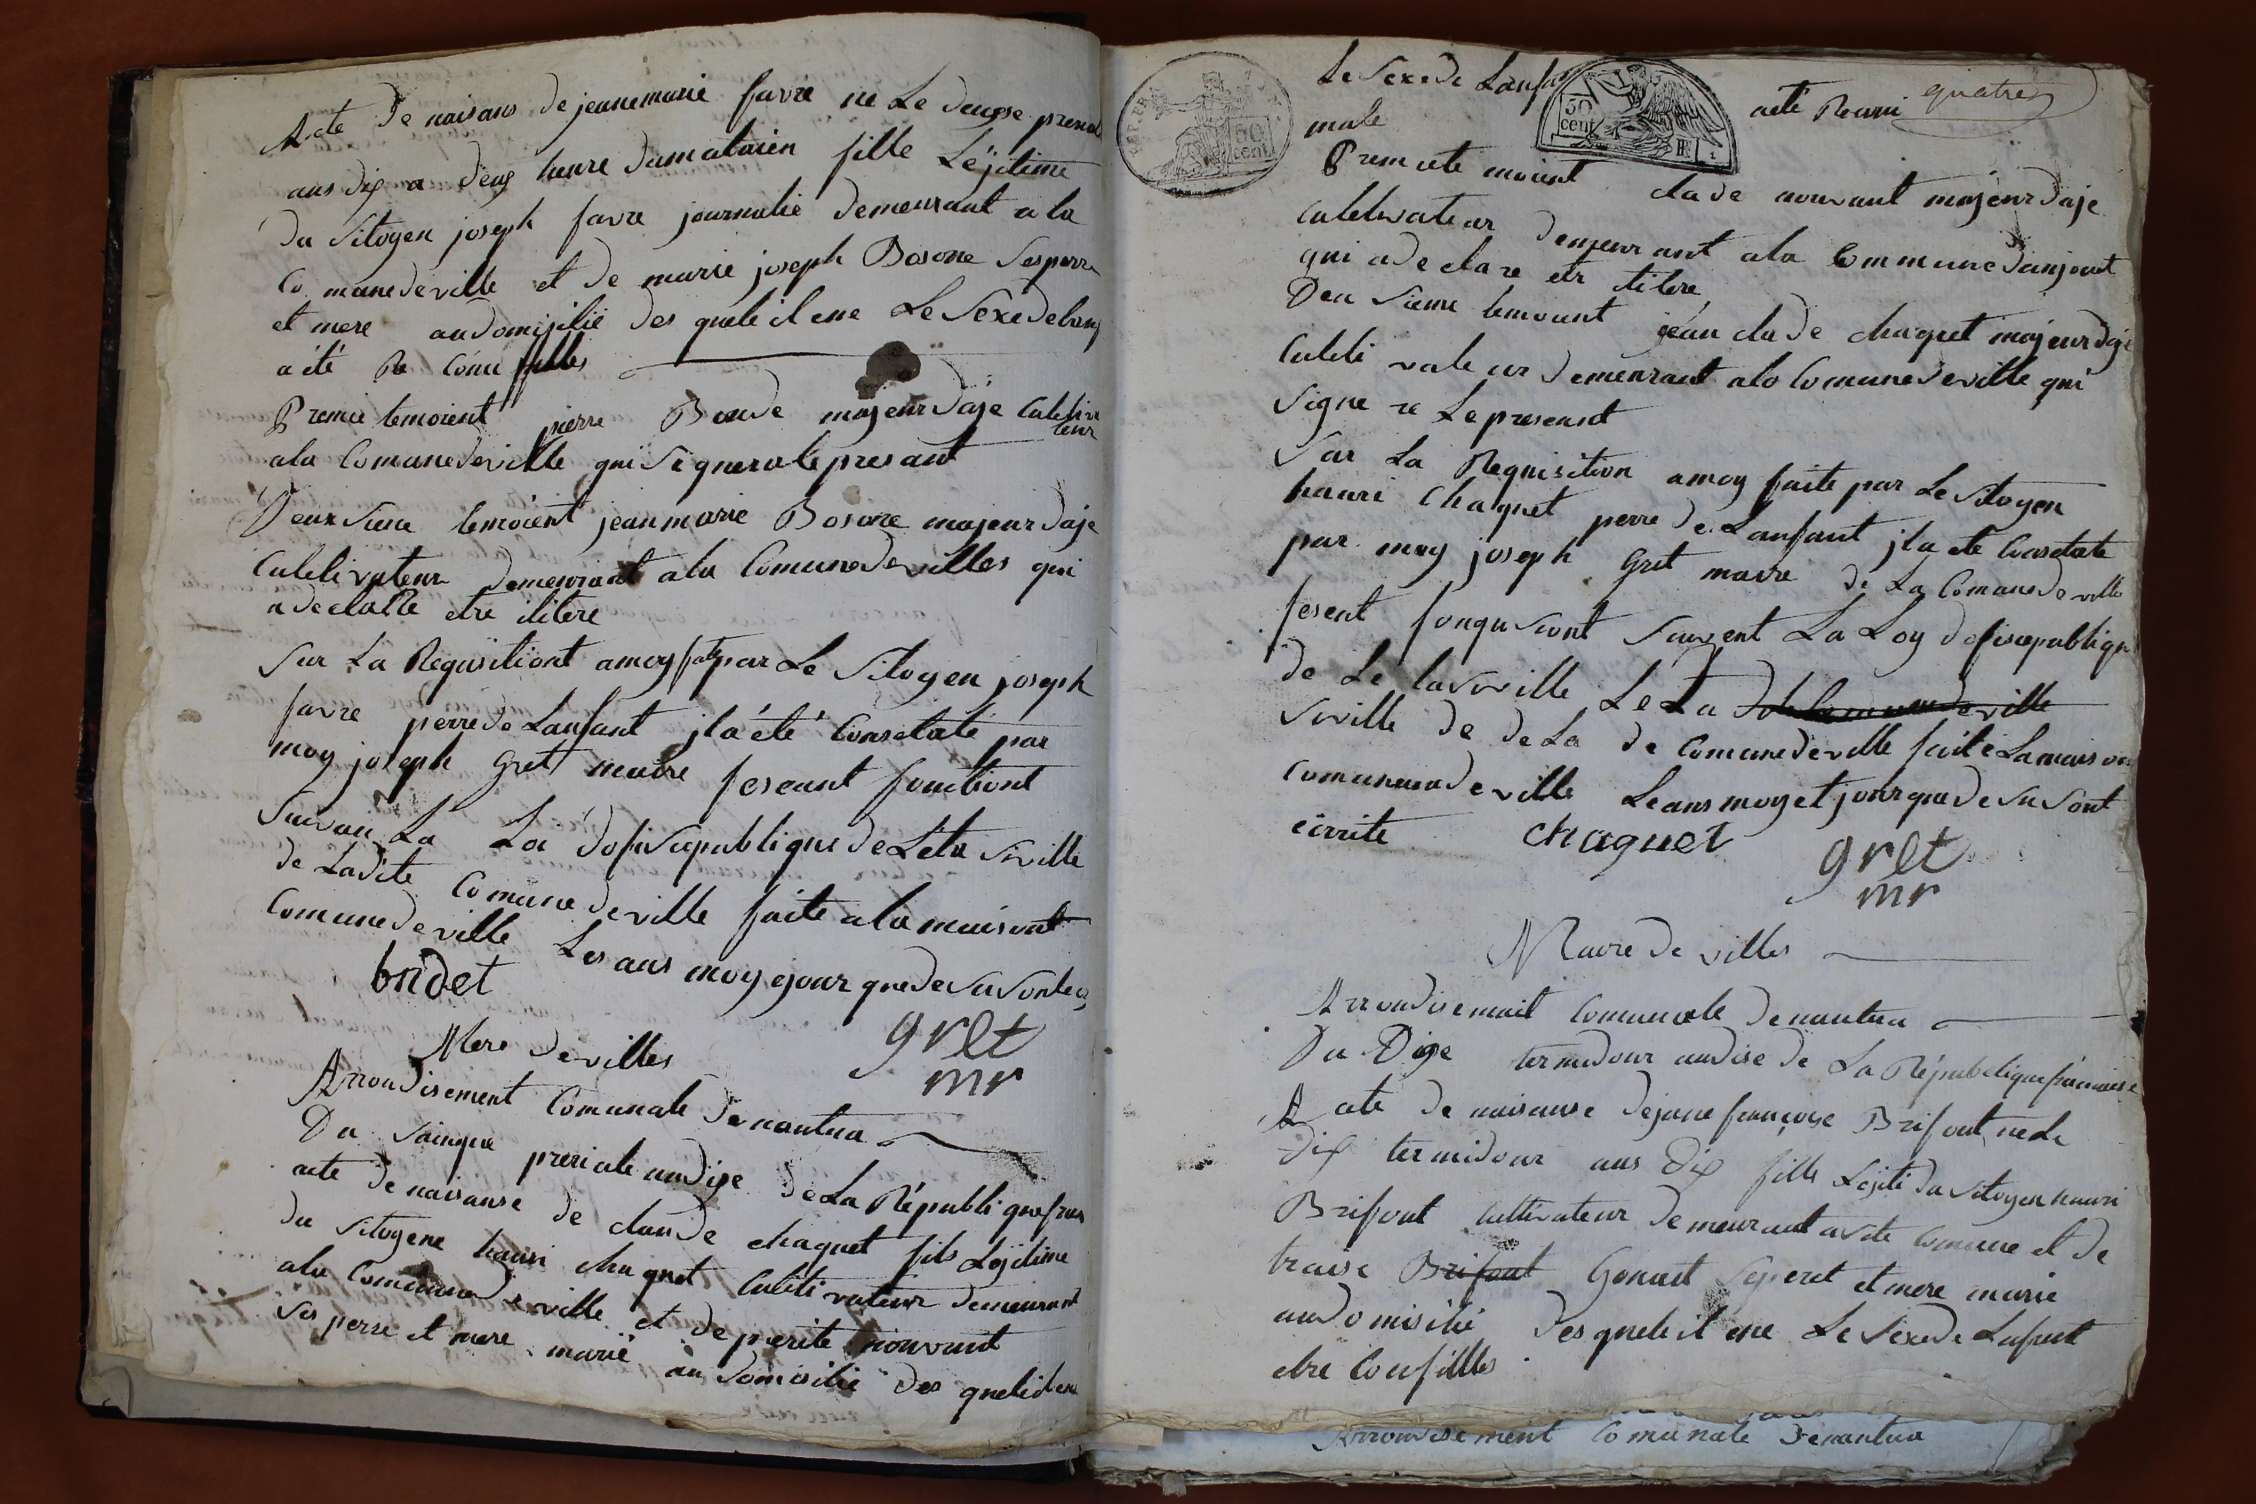 Acte de naisans de jeanemarie favre ne Le deuxse preriale
ans dix a deux heure dumataien fille Léjitime
du Sitoyen joseph favre journalié demeurant a la
Comune deville et de marie joseph Bosone Sesperre
et mere audomisilié des quele il ene Le Sexe delanf
a été Re Conu filles
Premié temoient pierre Bonde majeur daje Culetiva
teur
ala Comune deville qui Signera le presant
Deux Sieme temoient jeanmarie Bosone majeur daje
Culetivateur demeurant ala Comune devilles qui
a declaRe etre ilitere
Sur La Requisitiont amoy faite par Le Sitoyen joseph
favre perre de Lanfant jla été Consetaté par
moy joseph gret maire feseant fonctiont
Suivan La Loi dofisiepublique de Léta Siville
de Ladite Comune deville faite a la maisont
Comune deville Les ans moy ejour quedesu Sont ec
bridet
gret
mr
Mere devilles
Arrondisement Comunale denantua
Du Sainque preriale andixe de La Républiquefran
acte de naisanse de claude chaquet fils Lejitime
du Sitogene hanri chaquet Culetivateur demeurant
ala Comune deville et de pierite nouvant
Ses perre et mere marié au domisilié des quele il ene
Le Sexe de Lanfan
50
cent
50
cent
acte Reconu
quatre
male
Premiete moient clade nouvant majeur daje
Culetivateur demeurant ala Commune danjout
qui a declare etr ilitere
Deu Sieme temount jean clade chaquet majeur daje
Culeti vateur demeurant ala Comune deville qui
Signe re Lepreseant
Sur La Requisition amoy faite par Le Sitoyen
hanri Chaquet perre de Lanfant jla été Consetate
par moy joseph Gret maire de La Comune de ville
fesent fonqusiont Suivent La Loy dofisiepublique
de Lé tasivville Le La de la comune de ville
Siville de de La de Comune deville faite Lamaison
Comunne deville Leans moy et jour que de Su Sont
eirrite
chaquet
gret
mr
Maire de villes
Arrondisemait Comunale denantua
Du Dixe termidour andise de La Républiquefrancaise
Acte de naisanse dejane françoise Brifout, nele
Dix termidour ans Dix fille Lejiti du Sitoyen hanri
Brifout Cultivateur demeurant a dite Comune et de
traise Brifout Gonart Seperet et mere marie
audomisilié des quele il ene Le Sexe de Lafant
etre Conu filles
Arrondisement Comunale denantua